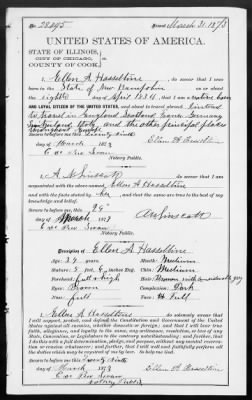 No 28295 Issued March 31 1873
UNITED STATES OF AMERICA.
STATE OF ILLINOIS,
CITY OF CHICAGO,
COUNTY OF COOK.
I, Ellen A Hasseltine, do swear that I was
born in the State of New Hampshire on the
eighth day of April 1834; that I am a Native born
AND LOYAL CITIZEN OF THE UNITED STATES, and about to travel abroad.
to travel in England Scotland France Germany
Switzerland Italy and the other principal places
throughout Europe
Sworn to before me, this twenty ninth
day of March 1873 Ellen A Hasseltine
Notary Public.
I, A N Linscott, do swear that I am
acquainted with the above-named Ellen A Hasseltine
and with the facts stated by her, and that the same are true to the best of my
knowledge and belief.
Sworn to before me, this 29
day of March 1873 A N Linscott
Notary Public.
Description of Ellen A Hasseltine
Age: 39 years. Mouth: Medium
Stature: 5 feet, 4 inches Eng. Chin: Medium
Forehead: full & high Hair: Brown with considerable gray
Eyes: Brown Complexion: Dark
Nose: full Face: full
I, Ellen A Hasseltine do solemnly swear that I
will support, protect, and defend the Constitution and Government of the United
States against all enemies, whether domestic or foreign; and that I will bear true
faith, allegiance, and loyalty to the same, any ordinance, resolution, or law of any State,
Convention, or Legislature to the contrary notwithstanding; and further, that I
do this with a full determination, pledge, and purpose, without any mental
reservation or evasion whatsoever; and further, that I will well and faithfully perform all
the duties which may be required of me by law. So help me God.
Sworn to before me, this twenty ninth
day of March 1873 Ellen A Hasseltine
Notary Public